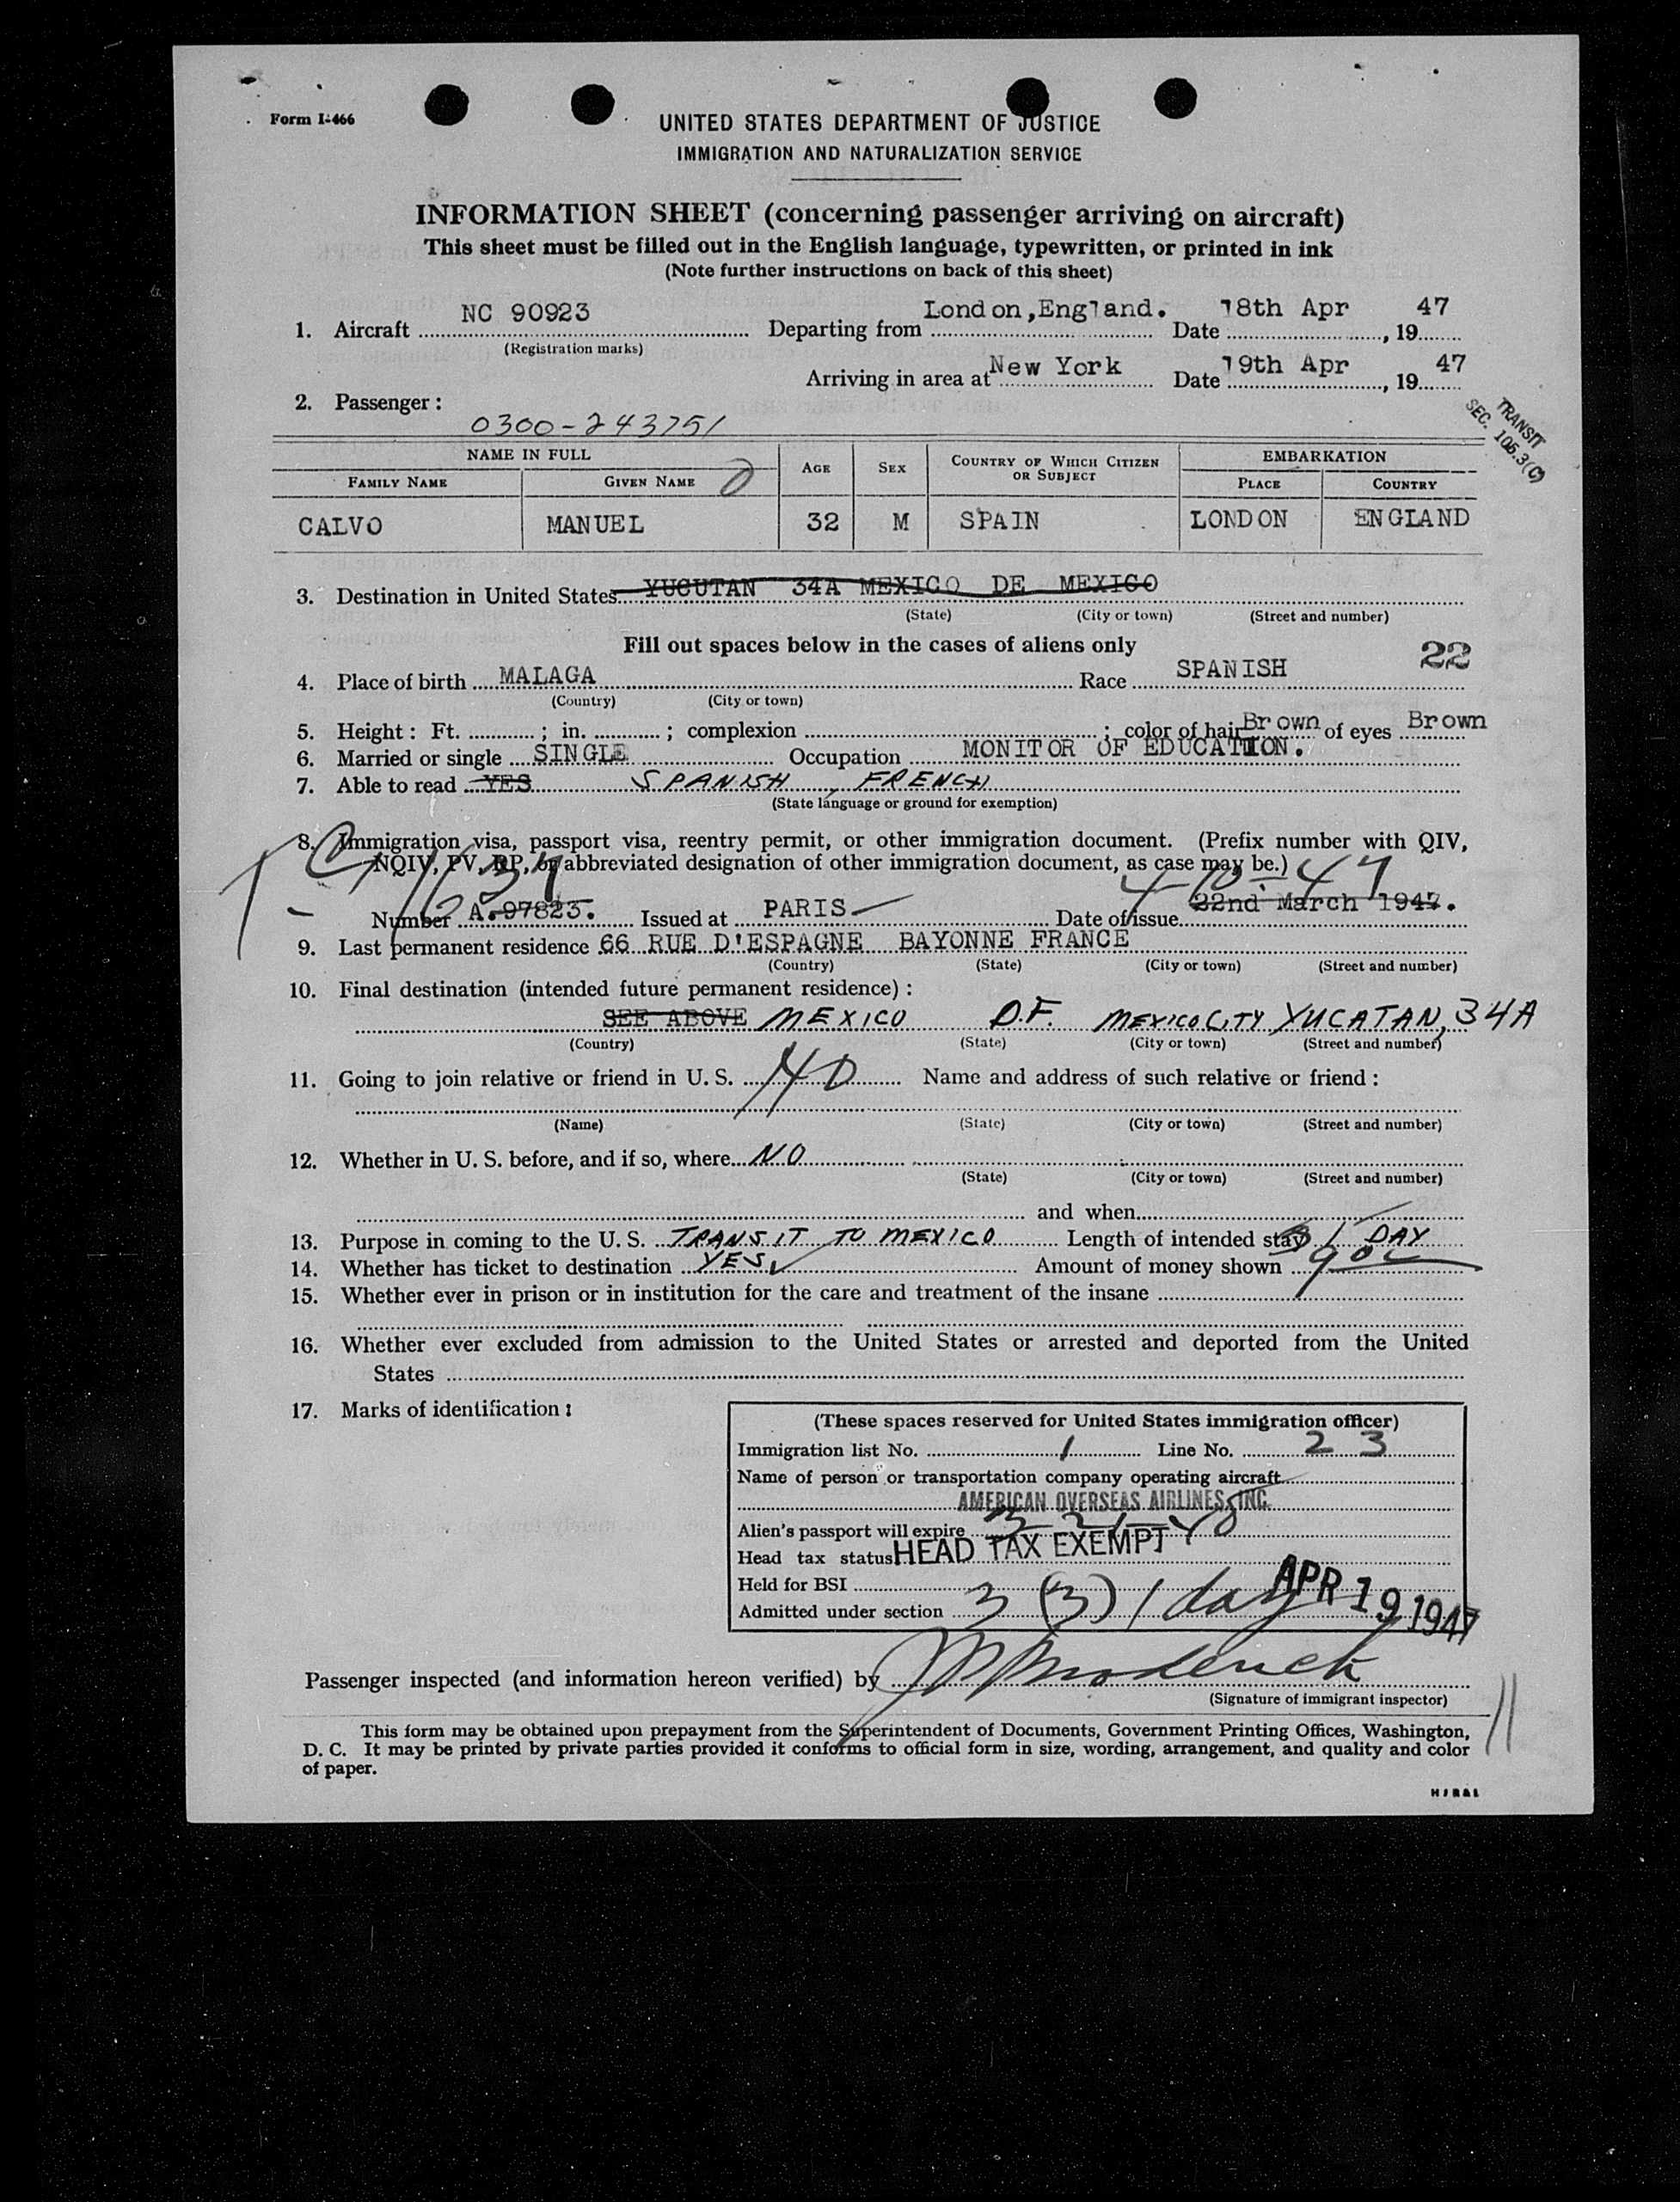 Form I-466
UNITED STATES DEPARTMENT OF JUSTICE
IMMIGRATION AND NATURALIZATION SERVICE
INFORMATION SHEET (concerning passenger arriving on aircraft)
This sheet must be filled out in the English language, typewritten, or printed in ink
(Note further instructions on back of this sheet)
1. Aircraft NC 90923 Departing from London,England. Date 18th Apr, 1947
(Registration marks)
Arriving in area at New York Date 19th Apr, 1947
2. Passenger:
0300-243751
TRANSIT
SEC. 105.3(C)
NAME IN FULL AGE SEX COUNTRY OF WHICH CITIZEN OR SUBJECT EMBARKATION
FAMILY NAME GIVEN NAME PLACE COUNTRY
CALVO MANUEL 32 M SPAIN LONDON ENGLAND
3. Destination in United States YUCUTAN 34A MEXICO DE MEXICO
(State) (City or town) (Street and number)
Fill out spaces below in the cases of aliens only
22
4. Place of birth MALAGA Race SPANISH
(Country) (City or town)
5. Height: Ft. ; in. ; complexion ; color of hair Brown of eyes Brown
6. Married or single SINGLE Occupation MONITOR OF EDUCATION.
7. Able to read YES SPANISH, FRENCH
(State language or ground for exemption)
8. Immigration visa, passport visa, reentry permit, or other immigration document. (Prefix number with QIV,
NQIV, PV, RP, or abbreviated designation of other immigration document, as case may be.)
4-10-47
Number A.97823. Issued at PARIS Date of issue 22nd March 1947.
9. Last permanent residence 66 RUE D'ESPAGNE BAYONNE FRANCE
(Country) (State) (City or town) (Street and number)
10. Final destination (intended future permanent residence):
SEE ABOVE MEXICO D.F. MEXICO CITY YUCATAN, 34A
(Country) (State) (City or town) (Street and number)
11. Going to join relative or friend in U. S. NO Name and address of such relative or friend:
(Name) (State) (City or town) (Street and number)
12. Whether in U. S. before, and if so, where NO
(State) (City or town) (Street and number)
and when
13. Purpose in coming to the U. S. TRANSIT TO MEXICO Length of intended stay 1 DAY
14. Whether has ticket to destination YES Amount of money shown
15. Whether ever in prison or in institution for the care and treatment of the insane
16. Whether ever excluded from admission to the United States or arrested and deported from the United
States
17. Marks of identification:
(These spaces reserved for United States immigration officer)
Immigration list No. 1 Line No. 23
Name of person or transportation company operating aircraft
AMERICAN OVERSEAS AIRLINES, INC.
Alien's passport will expire
Head tax status HEAD TAX EXEMPT
Held for BSI
Admitted under section 3 (3) 1 day APR 19 1947
Passenger inspected (and information hereon verified) by
(Signature of immigrant inspector)
11
This form may be obtained upon prepayment from the Superintendent of Documents, Government Printing Offices, Washington,
D. C. It may be printed by private parties provided it conforms to official form in size, wording, arrangement, and quality and color
of paper.